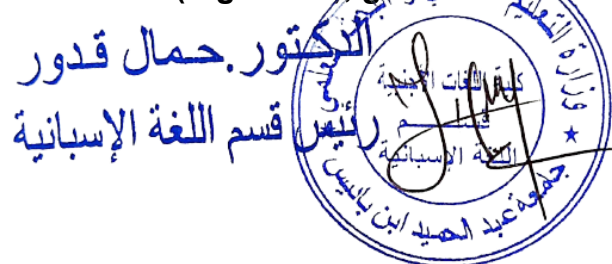 الدكتور.حمال قدور
رئيس قسم اللغة الإسبانية
وزارة التعليم
كلية اللغات الأجنبية
قسم
اللغة الإسبانية
جامعة عبد الحميد ابن باديس